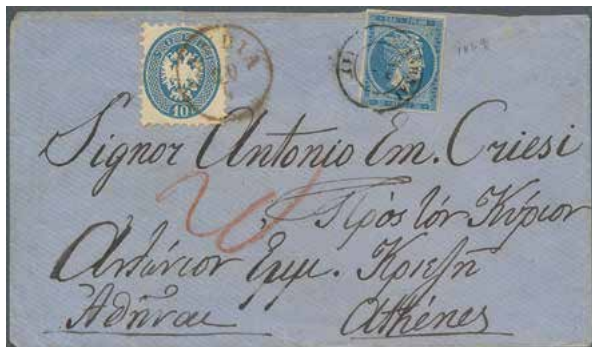 10
Signor Antonio Em. Criesi
20
Πρὸς τὸν Κύριον
Αντώνιον Εμμ. Κριεζη
Αθήναι Athènes